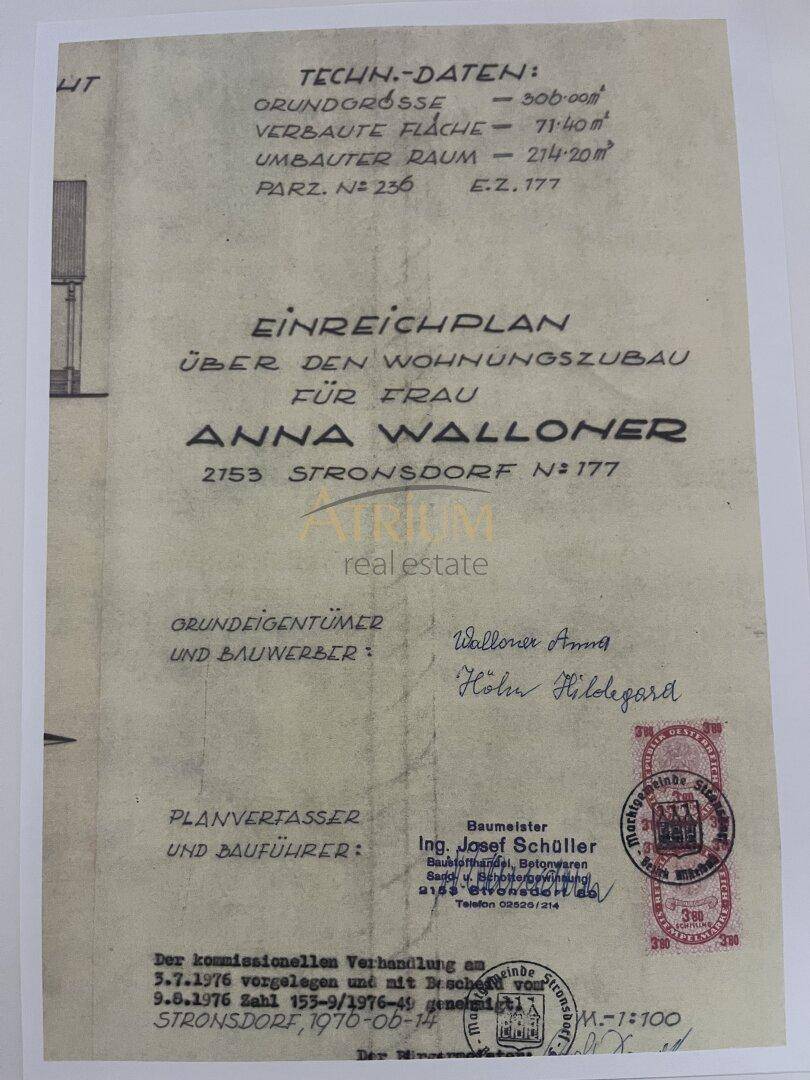 HT
TECHN.-DATEN:
GRUNDGRÖSSE — 306·00m²
VERBAUTE FLÄCHE — 71·40m²
UMBAUTER RAUM — 214·20m³
PARZ. Nº 236 E.Z. 177
EINREICHPLAN
ÜBER DEN WOHNUNGSZUBAU
FÜR FRAU
ANNA WALLONER
2153 STRONSDORF Nº 177
ATRIUM
real estate
GRUNDEIGENTÜMER
UND BAUWERBER:
Walloner Anna
Höhn Hildegard
3'80 3'80
REPUBLIK OESTERREICH
3'80
Marktgemeinde Stronsdorf
- Bezirk Mistelbach -
PLANVERFASSER
UND BAUFÜHRER:
Baumeister
Ing. Josef Schüller
Baustoffhandel, Betonwaren
Sand- u. Schottergewinnung
2153 Stronsdorf 89
Telefon 02526/214
3'80
SCHILLING
STEMPELMARKE
3'80 3'80
Der kommissionellen Verhandlung am
3.7.1976 vorgelegen und mit Bescheid vom
9.8.1976 Zahl 153-9/1976-49 genehmigt.
STRONSDORF, 1976-06-14 M.-1:100
Marktgemeinde Stronsdorf
Der Bürgermeister: